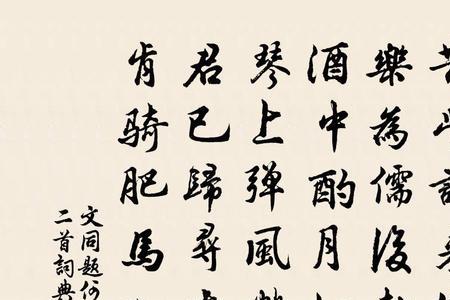 樂為儒後
酒中酌月
琴上彈風
君已歸尋
肯騎肥馬
文同題
二首詞典